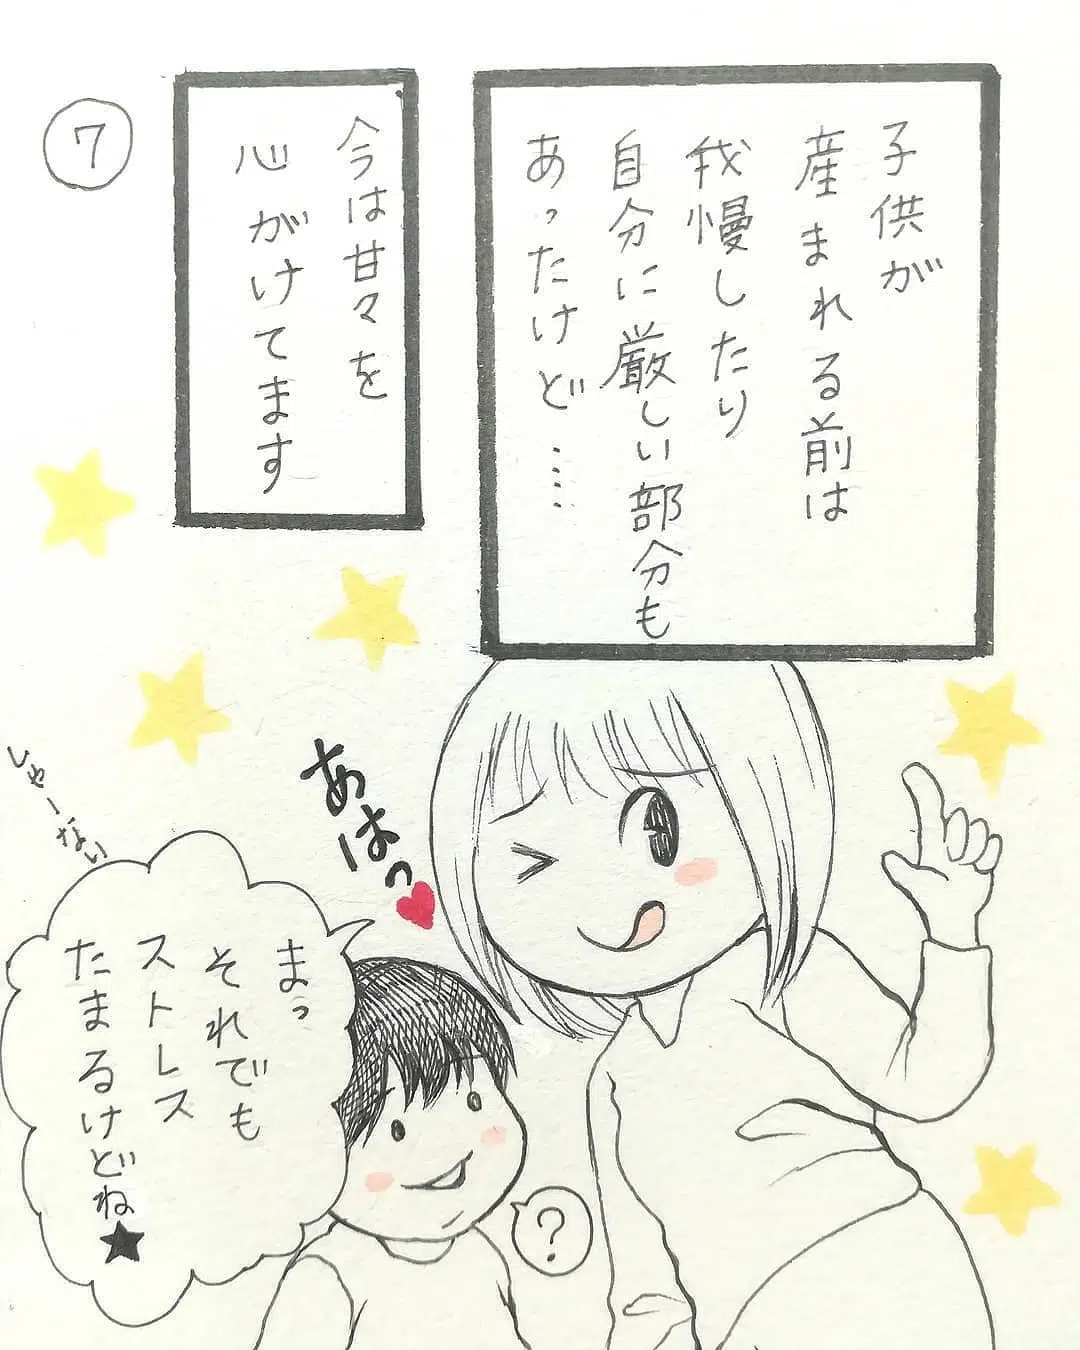 7
子供が
産まれる前は
我慢したり
自分に厳しい部分も
あったけど……
今は甘々を
心がけてます
あはっ
まっ
それでも
ストレス
たまるけどね★
しゃーない
?